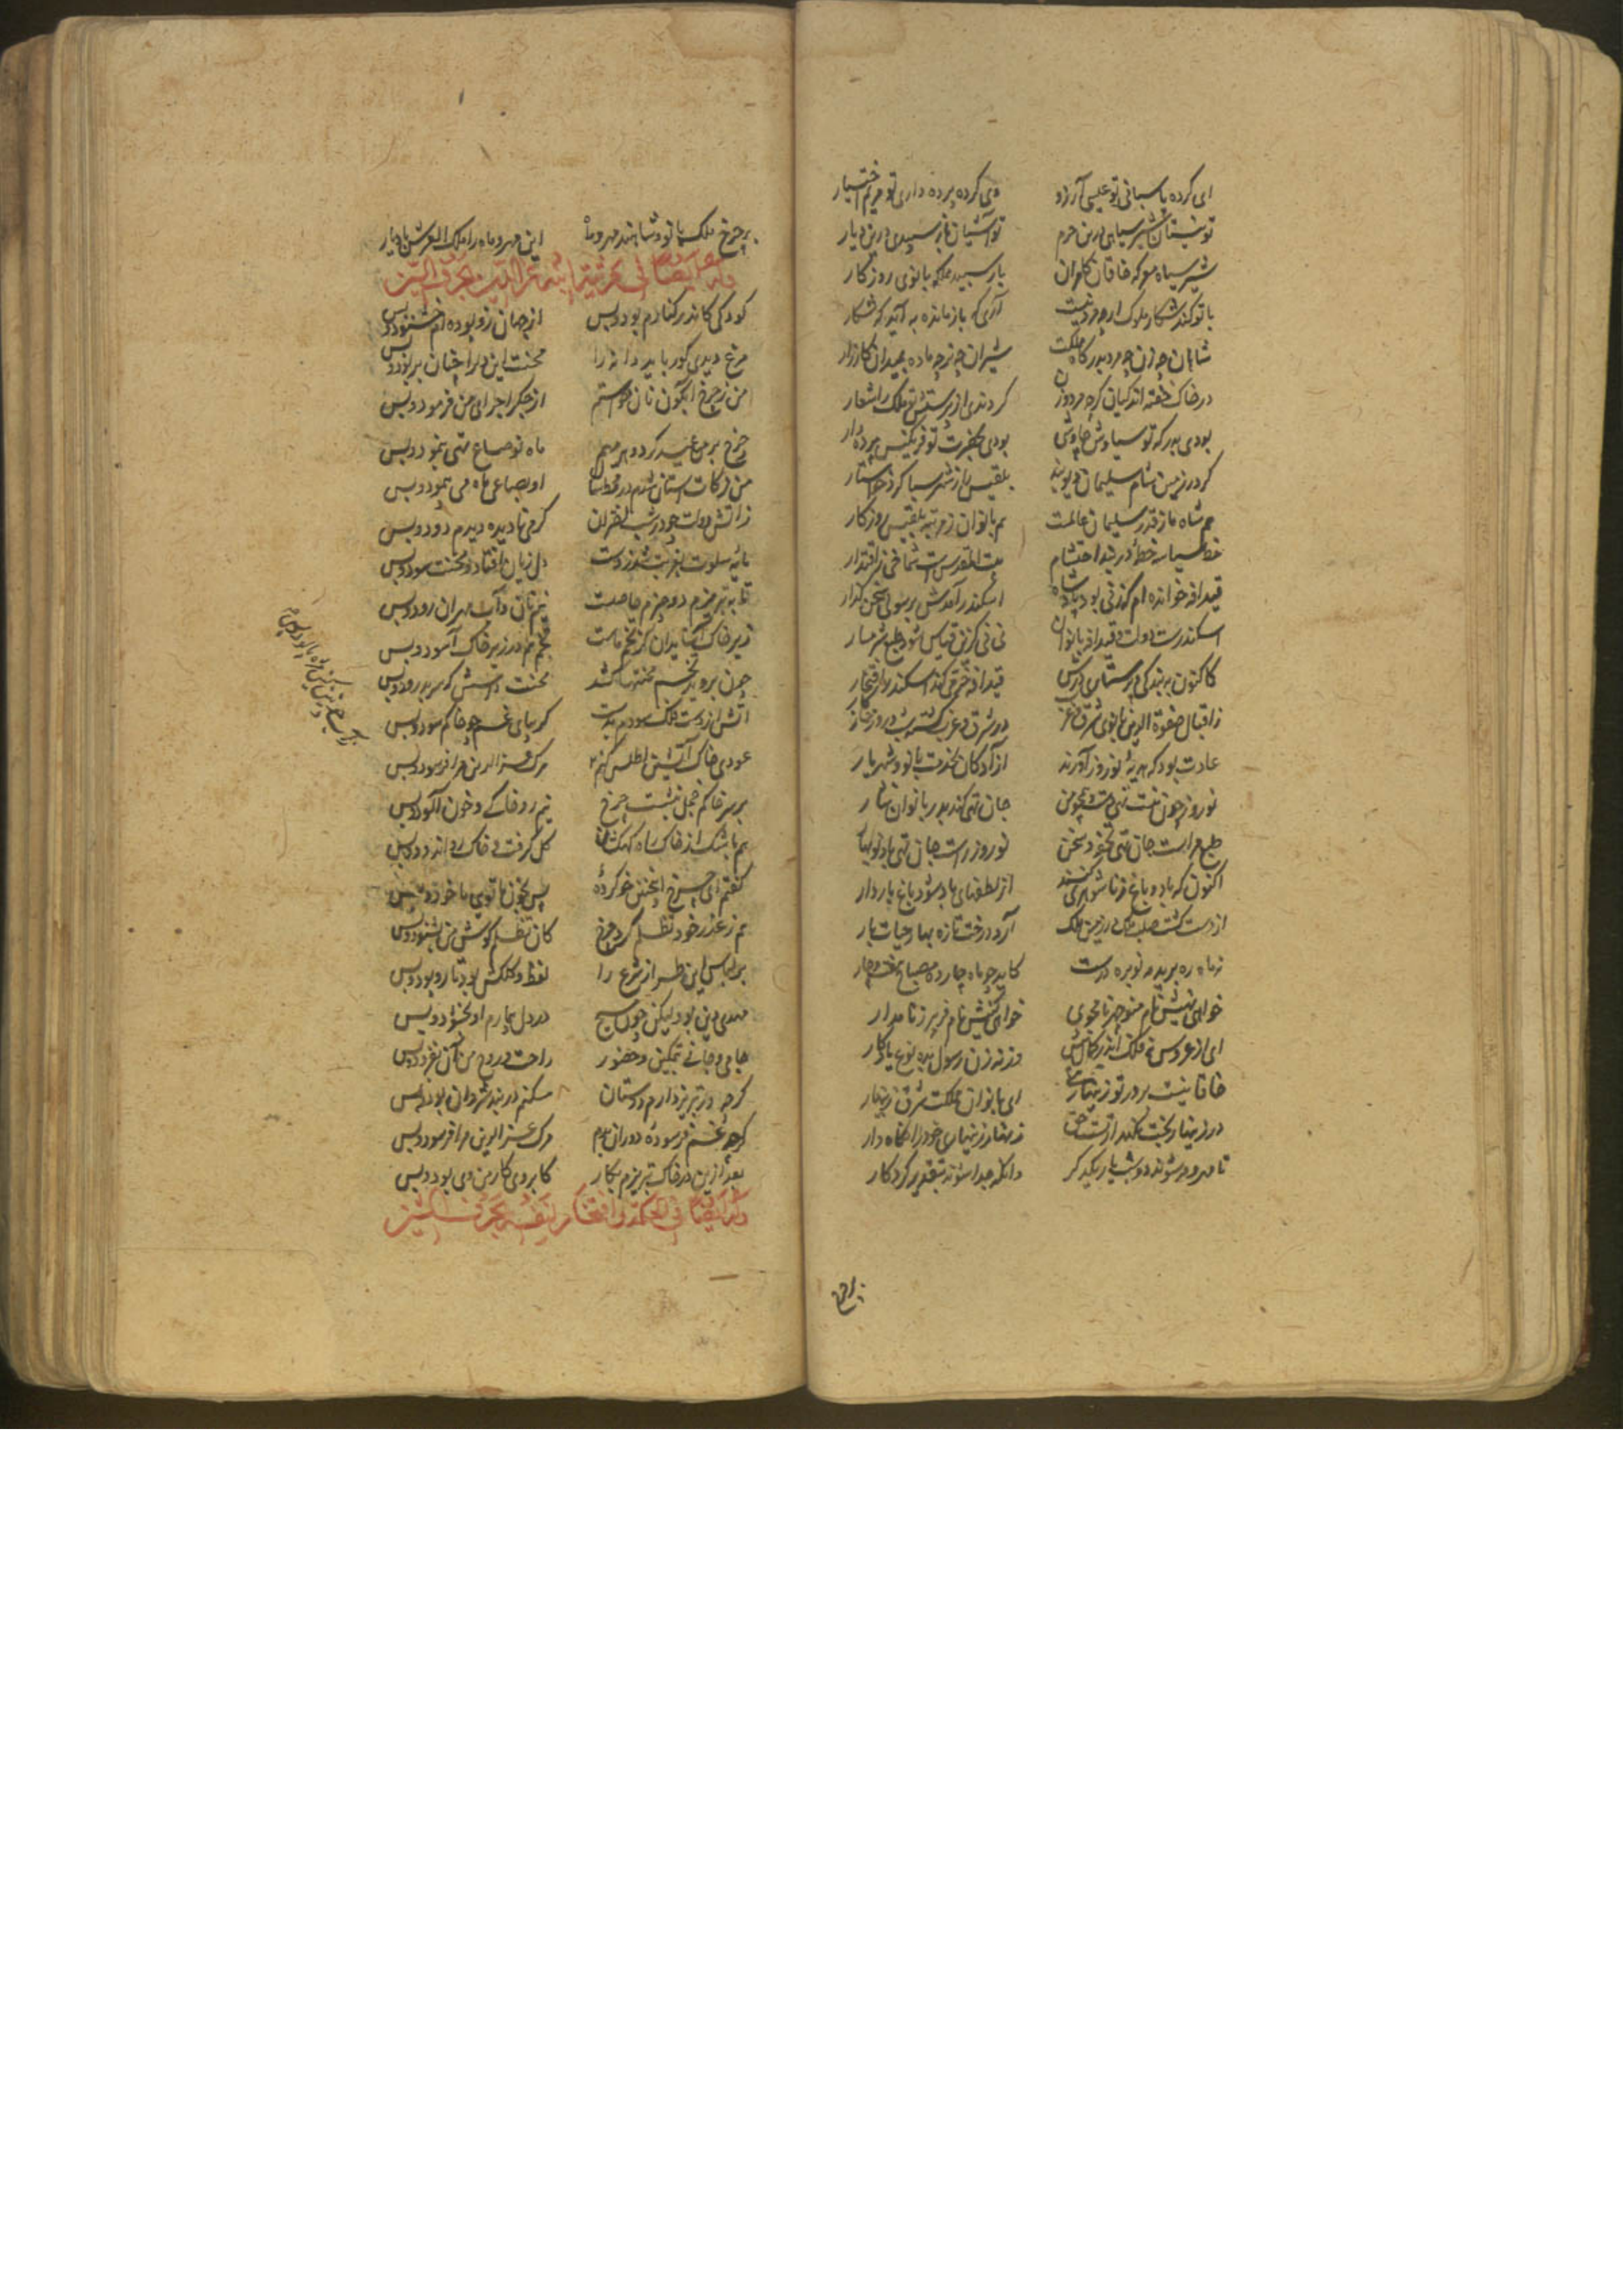 ای کرده پاسبانی تو عیسی آرزو وی کرده پرده داری تو مریم اختیار
تو شیر سیاهی درین حرم تو آشیان باز سپیدی درین دیار
شیر سیاه معرکه خاقان کامران باز سپید مملکه بانوی روزکار
با تو کند شکار ملوک ارچه مرد نیست آری که باز ماده به آید که شکار
شاهان چه زن چه مرد بدرکاه مملکت شیران چه نر چه ماده بمیدان کارزار
در خاک خفته اند کیان کر نه مرد و زن کردندی از پرستش تو ملک را شعار
بودی بدر که تو سیاوش چاوشی بودی بحضرت تو فرنکیس پرده دار
کر در زمین شام سلیمان دیو بند بلقیس را ز شهر سبا کرد خواستار
هم شاه ما ز قدر سلیمان عالمست هم بانوان ز مرتبه بلقیس روزکار
بیت المقدس است شماخی ز اقتدار
قیدافه خوانده ام که زنی بود پادشاه اسکندر آمدش برسولی سخن کذار
اسکندرست دولت و قیدافه بانوان نی نی کزین قیاس شود طبع شرمسار
کاکنون به بندکی و پرستاری درش قیدافه فخر کند اسکندر افتخار
ز اقبال صفوة الدین بانوی شرق و غرب در شرق و غرب کشت شب و روز
عادت بود که هدیه نوروز آورند آزادکان بخدمت بانو و شهریار
نوروز چون منست تهی دست و همچو من جان تهی کند بدر بانوان نثار
طبع مراست جان تهی تحفه سخن نوروز راست جان تهی باد نوبهار
اکنون که باد و باغ زناشوهری کنند از نطفهای باد شود باغ باردار
از دست کشت صلب ملک در زمین ملک آرد درخت تازه بهار حیات بار
نه ماه ره بریده مه نو بره درست کاید چو ماه چارده مصباح هفت و چار
خواهی نهیش نام منوچهر نامجوی خواهی کنیش نام فریبرز نامدار
ای از عروس نه فلک اندر کمال بیش وز نه زن رسول بده نوع یادکار
خاقانیست بر در تو زینهاریی ای بانوان مملکت شرق زینهار
در زینهار بخت نکهدار تست حق زنهار زینهاری خود را نکاه دار
تا مهر و مه شوند دو شب یار یکدکر وانکه جدا شوند بتقدیر کردکار
بر چرخ ملک بانو و شاهند مهر و ماه این مهر و ماه را ملک العرش باد یار
وله ایضا فی مرثیة ابنه عز الدین بحرف السین
کودکی کاندر کنارم بود و بس از جهان زو بوده ام خشنود و بس
مرغ دیدی کو رباید دانه را محنت این دل را چنان بربود و بس
من ز چرخ آبکون نان خواستم از جکر اجرای من فرمود و بس
چرخ بر من عید کرد و هر مهم ماه نو صاع تهی بنمود و بس
من زکات استان شدم او بصاعی باد می پیمود و بس
ز آتش دولت چو در شب کرمی نادیده دیدم دود و بس
مایه سلوت بغربت شد ز دست دل زیان افتاد و محنت سود و بس
تا بتبریزم دو چیزم حاصلست نیم نان و آب مهران رود و بس
زیر خاک آی بدان کز تخم ماست تخم هم در زیر خاک آسود و بس
چون بروید تخم محنتها بکشد محنت داسش که سر بدرود و بس
آتش از دست فلک سودم بدست کز بپای غم چو خاکم سود و بس
عودی خاک آتشین اطلس کنم مرک عز الدین مرا فرسود و بس
بر سر خاکم خجل بنشست چرخ نیم رو خاکی و خون آلود و بس
هم باشک از خاک راه کهکشان کل کرفت و خاک می اندود و بس
کفتم ای چرخ این چنین خو کرده پس بخون ما تویی ماخوذ و بس
هم ز عذر خود تظلم کرد چرخ کان تظلم کوش من بشنود و بس
بر لباس این طراز شرع را لفظ و کلکش بود تار و پود و بس
مهدی دین بود لیکن چون مسیح در دل بیمارم او بخنود و بس
جامی و جانی بتمکین و حضور راحت و روح من آن فزود و بس
کرچه در تبریز دارم دوستان مسکنم در بند شروان بود و بس
کرچه غم فرسوده دوران بدم مرک عز الدین مرا فرسود و بس
بعد ازین در خاک تبریزم چکار کابروی کار من وی بود و بس
وله ایضا فی الحکمة و افتخار نفسه بحرف الشین
بر چرخ